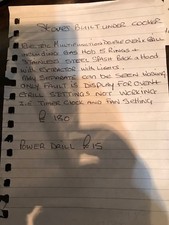 STOVES BUILT UNDER COOKER
ELECTRIC MULTIFUNCTION DOUBLE OVEN & GRILL
INCLUDING GAS HOB 5 RINGS +
STAINLESS STEEL SPLASH BACK & HOOD
WITH EXTRACTOR WITH LIGHTS.
FULLY SERVICABLE CAN BE SEEN WORKING
ONLY FAULT IS DISPLAY FOR OVEN +
GRILL SETTINGS NOT WORKING
IE TIMER CLOCK AND FAN SETTING
£ 180
POWER DRILL £15